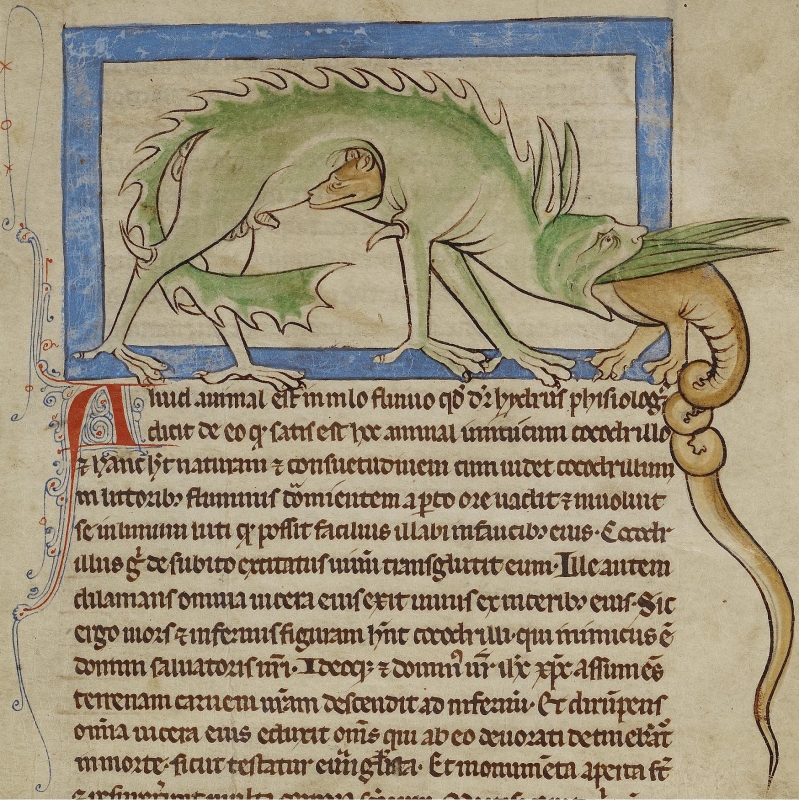 Aliud animal est in nilo flumio qd̄ dr̄ hydrus phisiolog᷒
dicit de eo qͥ satis est hoc animal inimicum cocodrillo
⁊ hanc hт naturam ⁊ consuetudinem cum uidet cocodrillum
in littorib᷒ fluminis dormientem aꝑto ore uadit ⁊ inuoluit
se in limum luti qͦ possit facilius illabi in faucib᷒ eius. Cocodr
illus gͥ de subito excitatus uiuū transglutit eum. Ille autem
dilanians omnia uicera eius exit uiuus ex uicerib᷒ eius. Sic
ergo mors ⁊ infernus figuram hn̄t cocodrilli. qui inimicus ē
domini saluatoris nr̄i. Ideoq᷒ ⁊ domin᷒ nr̄ ihc xp̄c assumēs
terrenam carnem nr̄am descendit ad infernū. Et dirūpens
om̄ia uicera eius eduxit om̄s qui ab eo deuorati detinebāt᷑
in morte. sicut testatur euāgl̄ista. Et monumēta aperta sт̄
⁊ resurrexerunt multa corpora